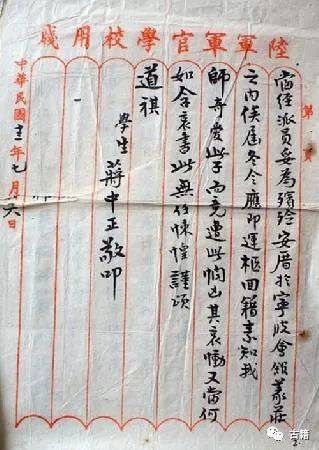 陸軍軍官學校用牋
第 頁
當經派員妥為殯殮安厝於寧波會館義莊
云內俟屆冬令應即運柩回籍素知我
師奇愛此子而竟遭此悯凶其哀慟又當何
如余哀書此無任悚惶謹頌
道祺
學生 蔣中正敬叩
中華民國十三年七月六日
古籍